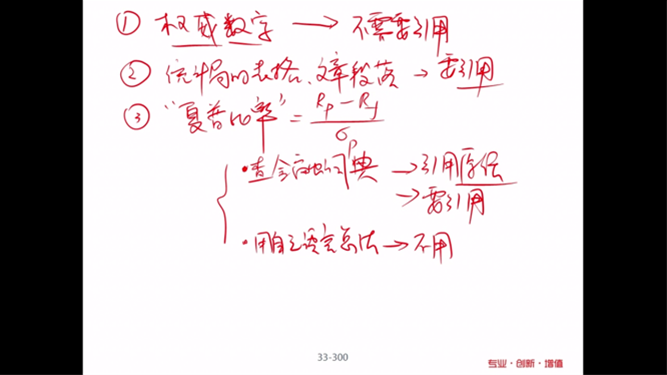 ① 权威数字 → 不需要引用
② 统计局的表格、文章段落 → 要引用
③ "夏普比率" = Rp - Rf / σp
· 查金融词典 → 引用原话
→ 要引用
· 用自己语言总结 → 不用
33-300
专业·创新·增值